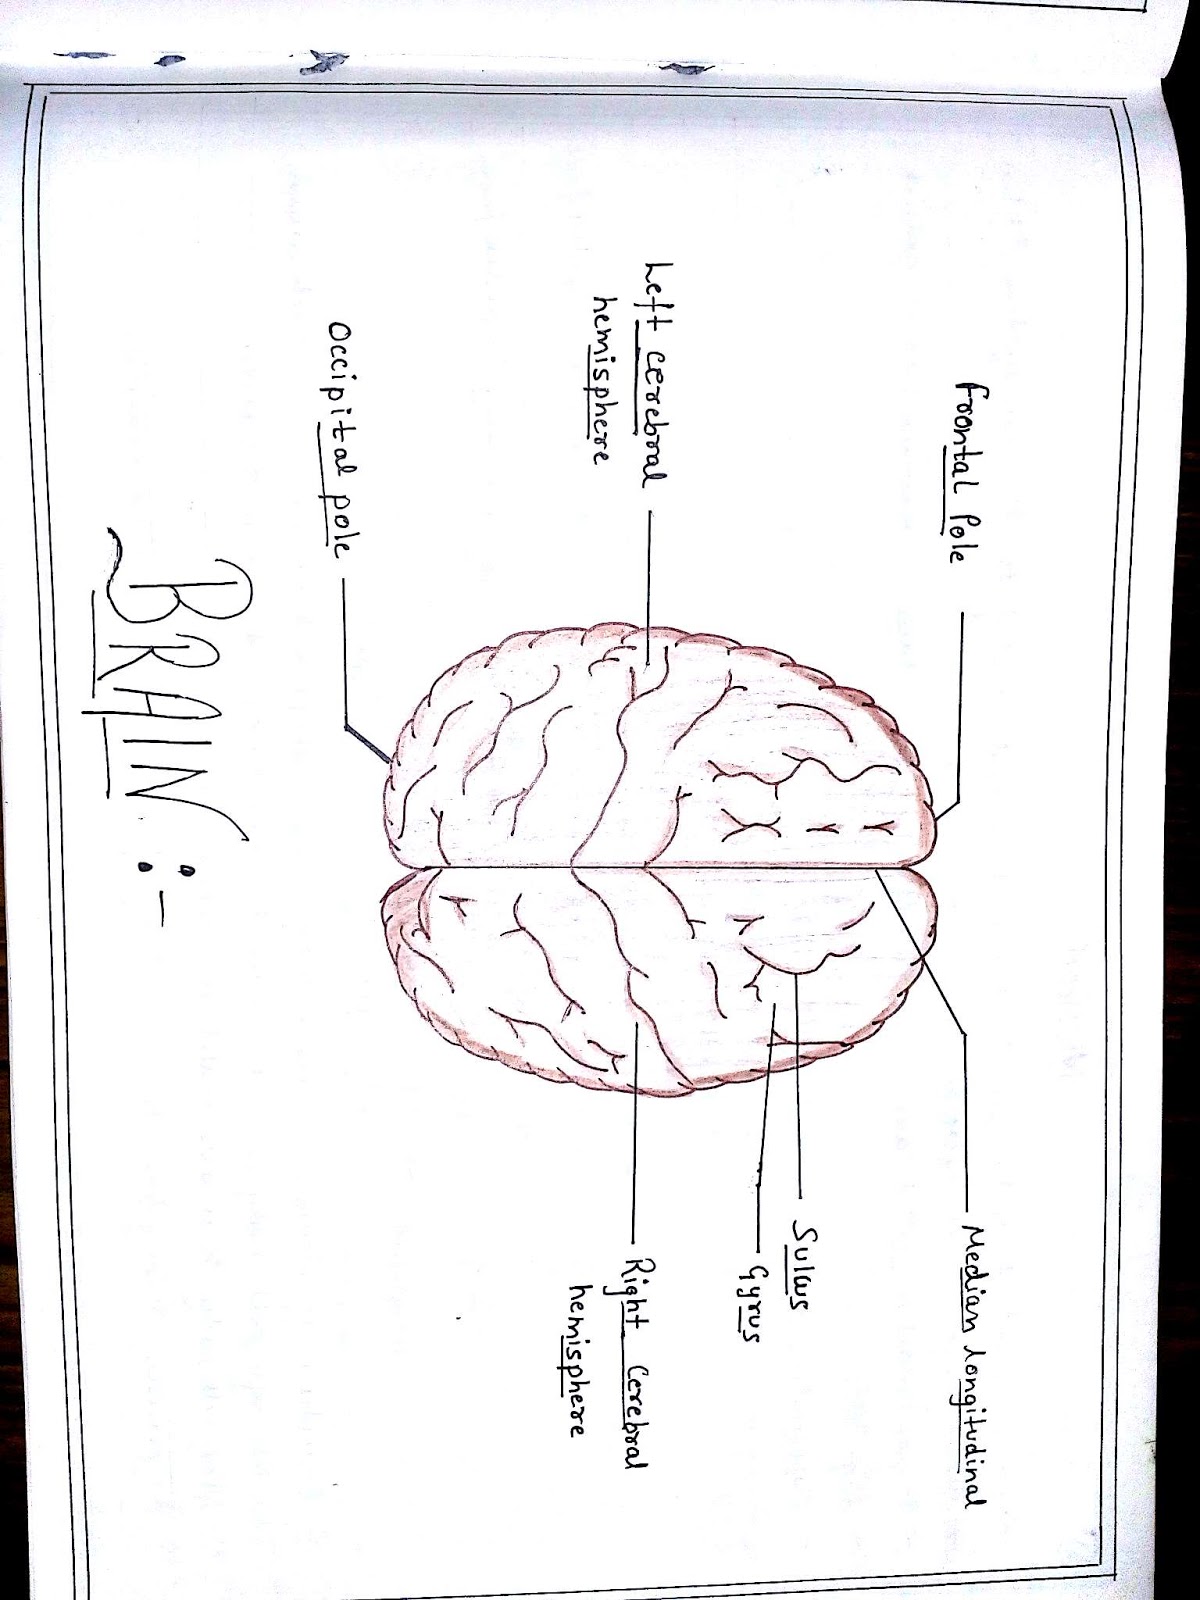 Frontal Pole
Left cerebral
hemisphere
Occipital pole
Median longitudinal
Sulcus
Gyrus
Right cerebral
hemisphere
BRAIN :-